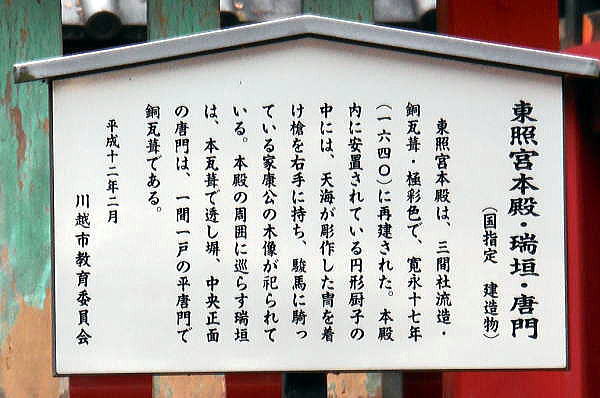 東照宮本殿・瑞垣・唐門
（国指定　建造物）
東照宮本殿は、三間社流造・
銅瓦葺・極彩色で、寛永十七年
（一六四〇）に再建された。本殿
内に安置されている円形厨子の
中には、天海が彫作した冑を着
け槍を右手に持ち、駿馬に騎っ
ている家康公の木像が祀られて
いる。本殿の周囲に巡らす瑞垣
は、本瓦葺で透し塀、中央正面
の唐門は、一間一戸の平唐門で
銅瓦葺である。
平成十二年二月
川越市教育委員会